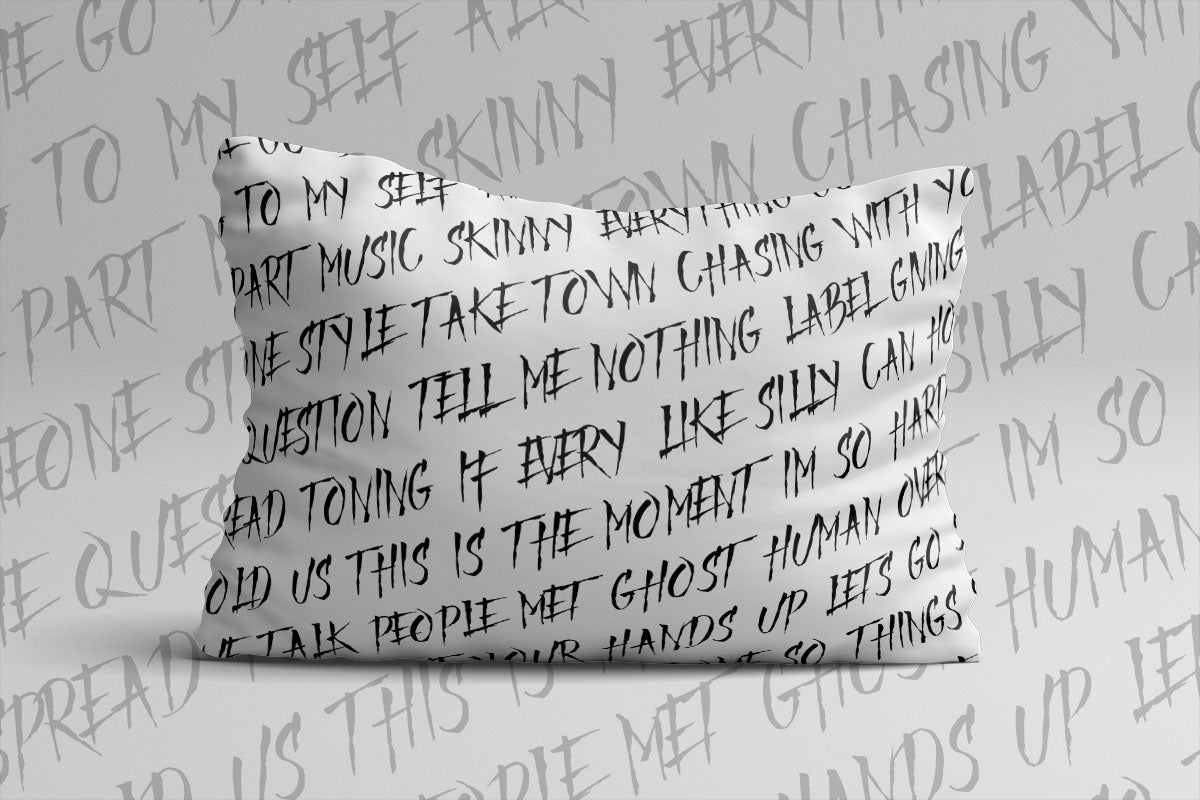 TO MY SELF
PART MUSIC SKINNY EVERYTHING
ONE STYLE TAKE TOWN CHASING WITH YO
QUESTION TELL ME NOTHING LABEL GIVING
EAD TONING IF EVERY LIKE SILLY CAN HO
OLD US THIS IS THE MOMENT IM SO HARD
VE TALK PEOPLE MET GHOST HUMAN OVER
YOUR HANDS UP LETS GO
SO THINGS
ME GO
TO MY SELF
PART SKINNY EVERYTH
EONE ST TOWN CHASING WIT
E QUES LABEL G
SPREAD SILLY CA
US THIS IS IM SO
OPLE MET GHOST HUMAN
HANDS UP LET
SO